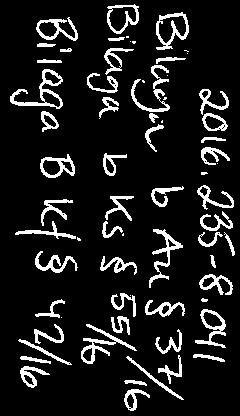 2016.235-8.041
Bilaga b Au § 37/16
Bilaga b Ks § 55/16
Bilaga B Kf § 42/16